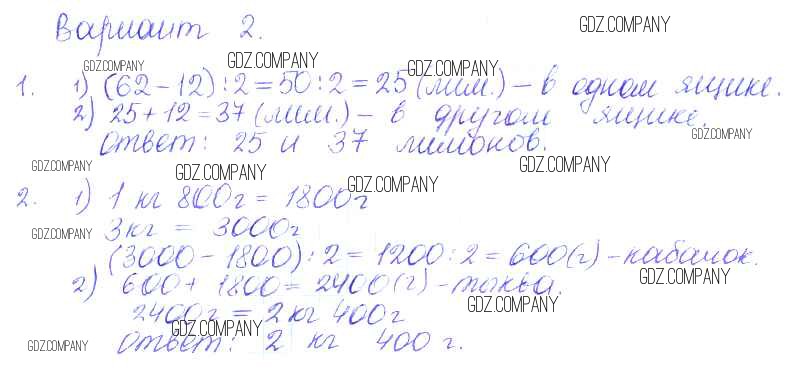 Вариант 2.
1. 1) (62-12):2=50:2=25 (лим.) - в одном ящике.
2) 25+12=37 (лим.) - в другом ящике.
Ответ: 25 и 37 лимонов.
2. 1) 1 кг 800г = 1800г
3кг = 3000г
(3000-1800):2=1200:2=600(г) - кабачок.
2) 600+1800=2400(г) - тыква.
2400г = 2 кг 400г
Ответ: 2 кг 400 г.
GDZ.COMPANY
GDZ.COMPANY
GDZ.COMPANY
GDZ.COMPANY
GDZ.COMPANY
GDZ.COMPANY
GDZ.COMPANY
GDZ.COMPANY
GDZ.COMPANY
GDZ.COMPANY
GDZ.COMPANY
GDZ.COMPANY
GDZ.COMPANY
GDZ.COMPANY